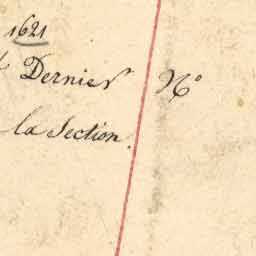 1621
& Dernier N°
la Section.